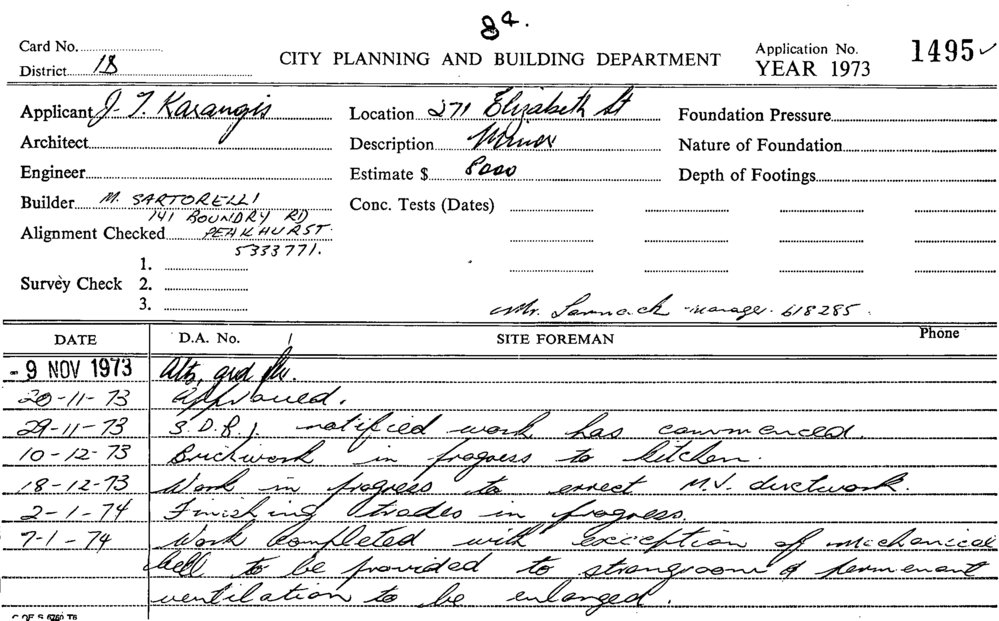 8a.
Card No.
District 18
CITY PLANNING AND BUILDING DEPARTMENT
Application No. 1495 ✓
YEAR 1973
Applicant J. T. Karangis
Location 271 Elizabeth St
Foundation Pressure
Architect
Description Minor
Nature of Foundation
Engineer
Estimate $ 8000
Depth of Footings
Builder M. SARTORELLI
141 BOUNDRY RD
Conc. Tests (Dates)
Alignment Checked PEAKHURST.
5333771.
1.
Survey Check 2.
3.
Mr. manager. 618285.
DATE D.A. No. SITE FOREMAN Phone
- 9 NOV 1973 Alts, grd flr.
20-11-73 Approved.
29-11-73 S.D.B.I. notified work has commenced.
10-12-73 Brickwork in progress to kitchen.
18-12-73 Work in progress to errect M.V. ductwork.
2-1-74 Finishing trades in progress.
7-1-74 Work completed with exception of mechanical
bell to be provided to strongroom & permenant
ventilation to be enlarged.
C OF S 6260 T6